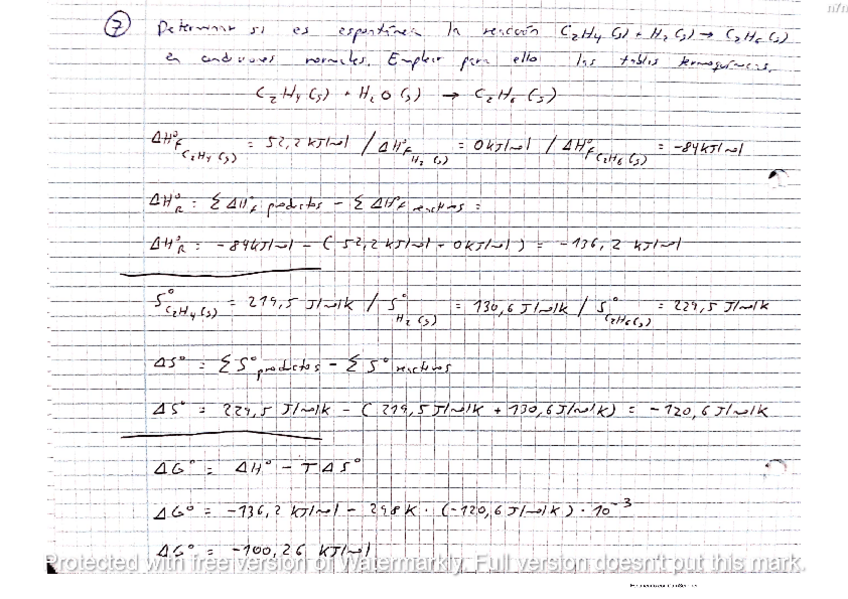 7 Determinar si es espontánea la reacción C2H4 (g) + H2 (g) → C2H6 (g)
en condiciones normales. Emplear para ello las tablas termoquímicas.
C2H4 (g) + H2O (g) → C2H6 (g)
ΔH°f C2H4 (g) = 52,2 kJ/mol / ΔH°f H2 (g) = 0 kJ/mol / ΔH°f C2H6 (g) = -84 kJ/mol
ΔH°R = Σ ΔH°f productos - Σ ΔH°f reactivos =
ΔH°R = -84 kJ/mol - (52,2 kJ/mol + 0 kJ/mol) = -136,2 kJ/mol
S° C2H4 (g) = 219,5 J/molK / S° H2 (g) = 130,6 J/molK / S° C2H6 (g) = 229,5 J/molK
ΔS° = Σ S° productos - Σ S° reactivos
ΔS° = 229,5 J/molK - (219,5 J/molK + 130,6 J/molK) = -120,6 J/molK
ΔG° = ΔH° - TΔS°
ΔG° = -136,2 kJ/mol - 298 K · (-120,6 J/molK) · 10⁻³
ΔG° = -100,26 kJ/mol
Protected with free version of Watermarkly. Full version doesn't put this mark.